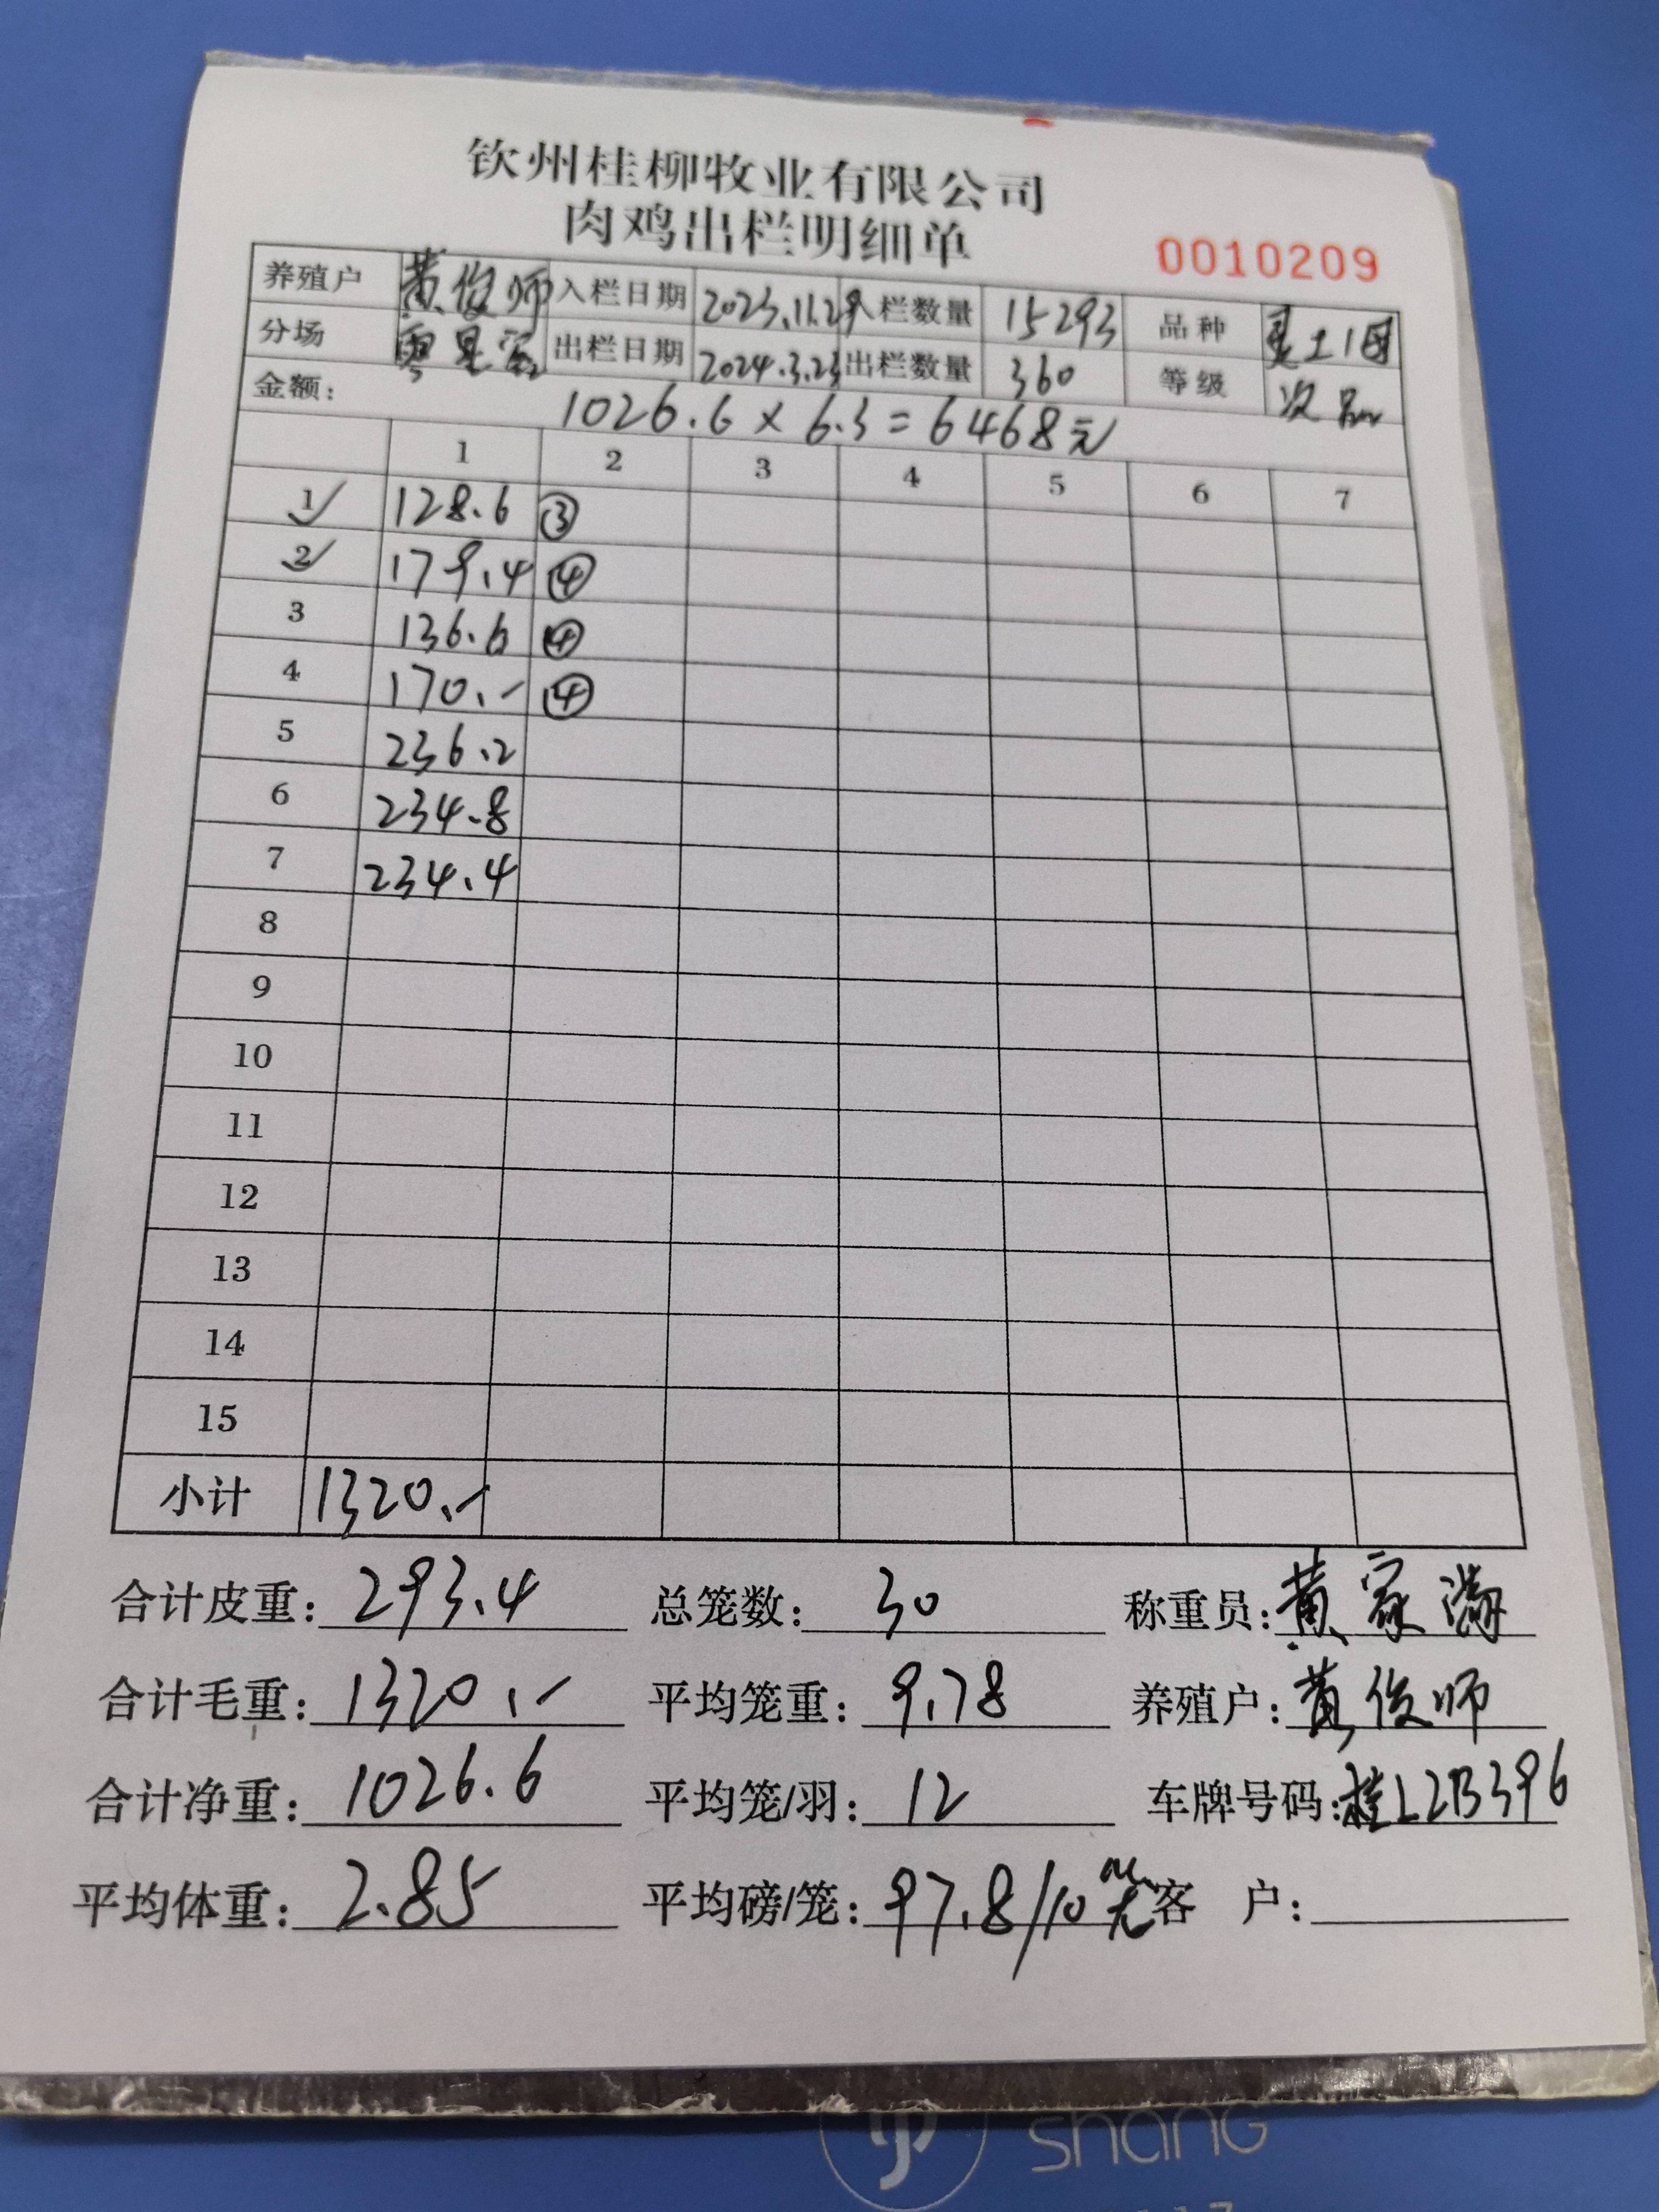 钦州桂柳牧业有限公司
肉鸡出栏明细单
0010209
养殖户 黄俊师 入栏日期 2023.11.29 入栏数量 15293 品种 土1
分场 出栏日期 2024.3.23 出栏数量 360 等级 次品
金额: 1026.6 × 6.3 = 6468元
1 2 3 4 5 6 7
1 128.6 ③
2 179.4 ④
3 136.6 ④
4 170.- ④
5 236.2
6 234.8
7 234.4
8
9
10
11
12
13
14
15
小计 1320.-
合计皮重: 293.4 总笼数: 30 称重员: 黄家满
合计毛重: 1320.- 平均笼重: 9.78 养殖户: 黄俊师
合计净重: 1026.6 平均笼/羽: 12 车牌号码: 桂L2B396
平均体重: 2.85 平均磅/笼: 97.8/10笼 客 户:
shang